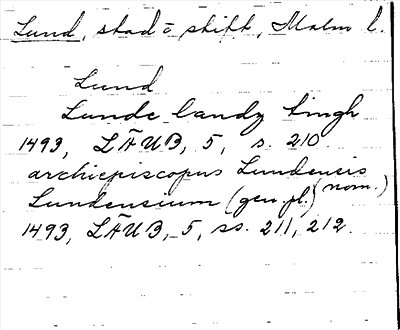 Lund, stad o stift, Malm l.
Lund
Lunde landz tingh
1493, LÄUB, 5, s. 210
archiepiscopus Lundensis (nom.)
Lundensium (gen. pl.)
1493, LÄUB, 5, ss. 211, 212.